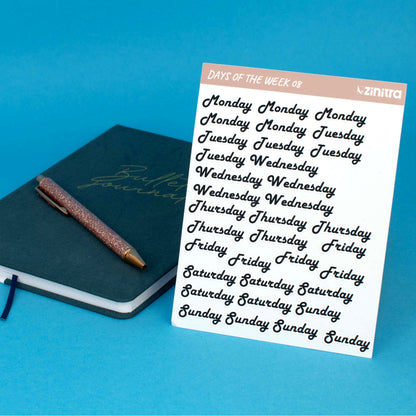 DAYS OF THE WEEK 08
zinitra
Monday Monday Monday
Monday Monday Tuesday
Tuesday Tuesday Tuesday
Tuesday Wednesday
Wednesday Wednesday
Wednesday Wednesday
Thursday Thursday Thursday
Thursday Thursday Friday
Friday Friday Friday
Saturday Saturday Saturday
Saturday Saturday Sunday
Sunday Sunday Sunday Sunday
Bullet
Journal